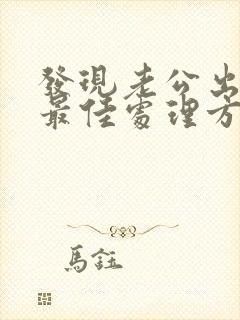 發現老公出
最佳處理方
馬鈺